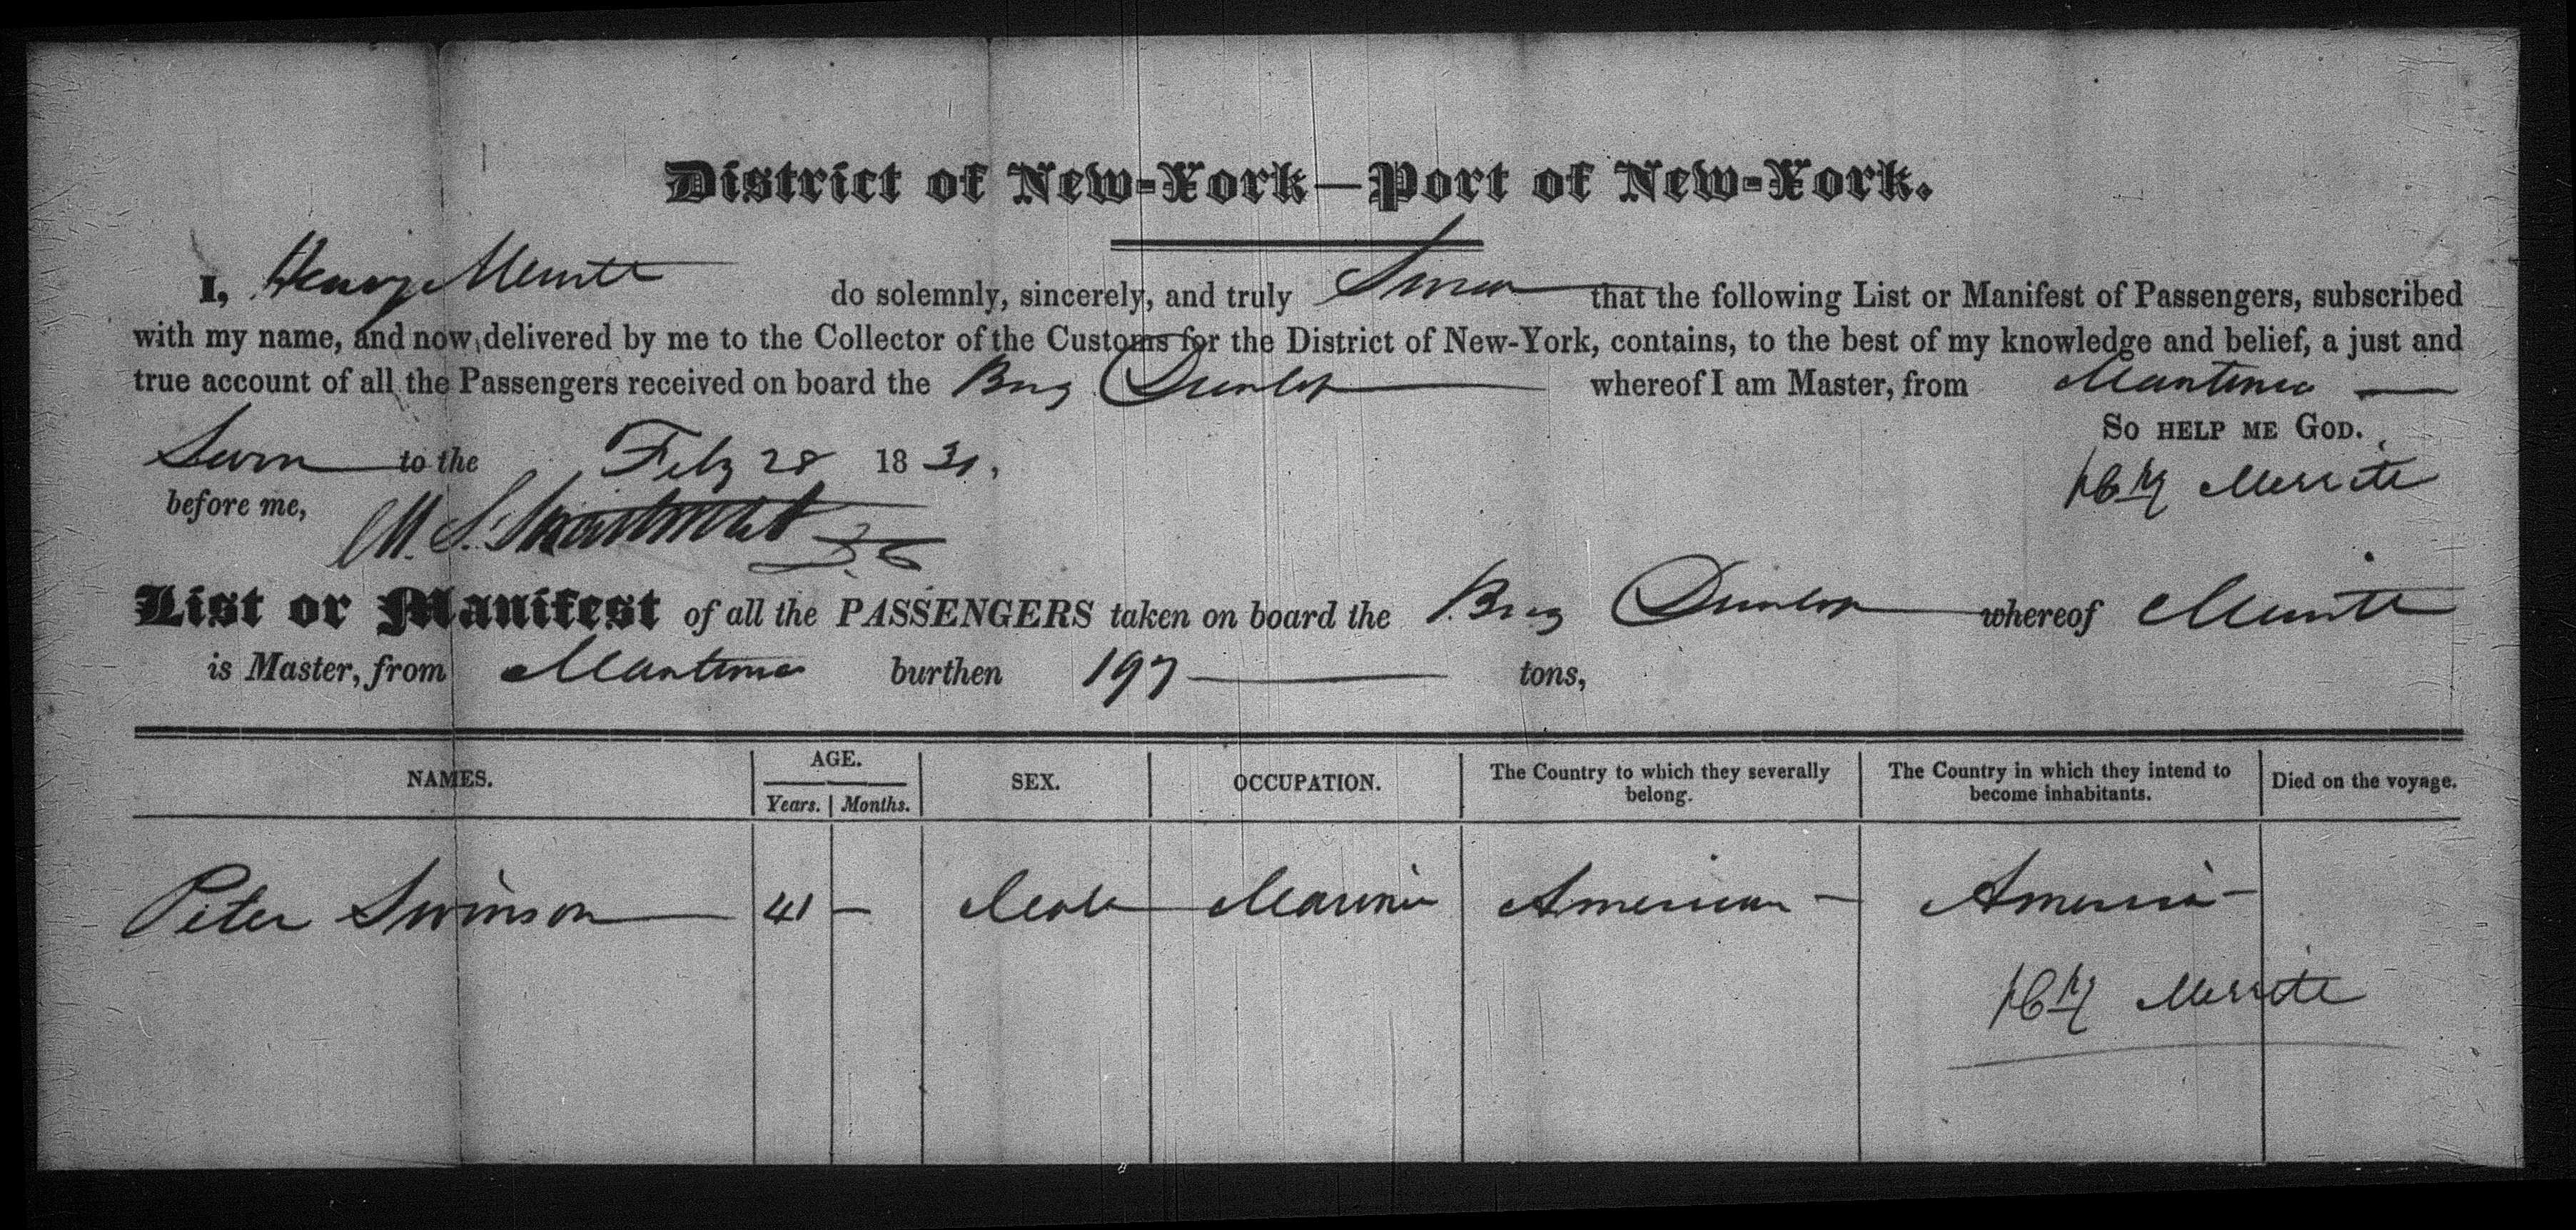 District of New-York—Port of New-York.
I, Henry Merritt do solemnly, sincerely, and truly Swear that the following List or Manifest of Passengers, subscribed
with my name, and now delivered by me to the Collector of the Customs for the District of New-York, contains, to the best of my knowledge and belief, a just and
true account of all the Passengers received on board the Brig Dunlop whereof I am Master, from
SO HELP ME GOD.
Sworn to the Feby 28 18
Hy Merritt
before me,
List or Manifest of all the PASSENGERS taken on board the Brig Dunlop whereof Merritt
is Master, from burthen 197 tons,
NAMES. AGE. Years. Months. SEX. OCCUPATION. The Country to which they severally belong. The Country in which they intend to become inhabitants. Died on the voyage.
Peter Swinson 41 — Male Mariner American — America —
Hy Merritt